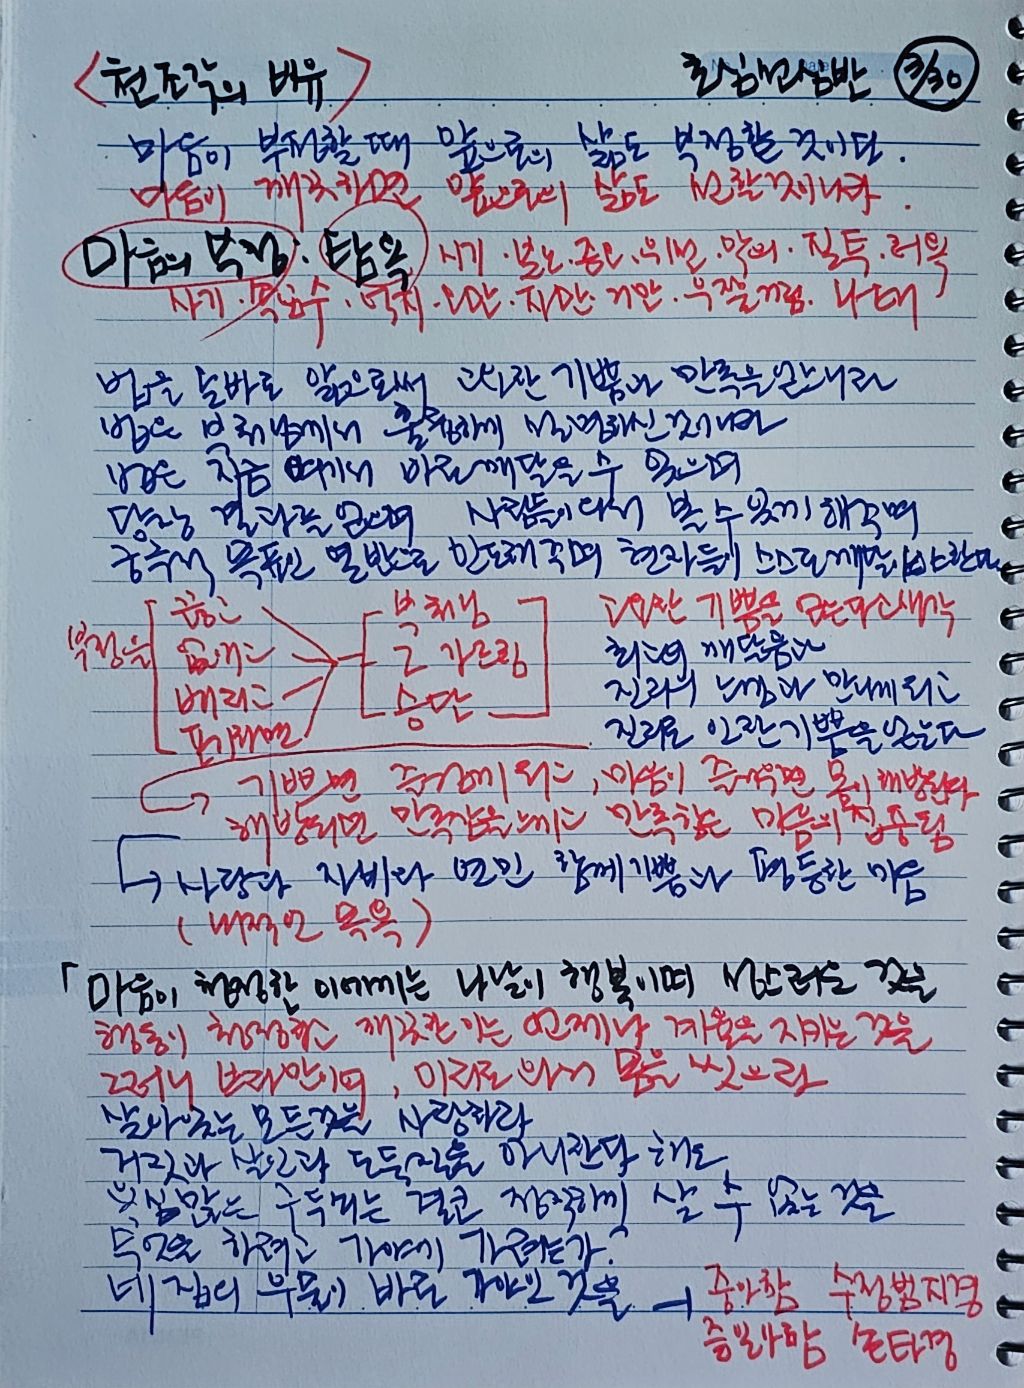 <천조각의 비유> 초심선실반 3/30
마음이 부정할 때 앞으로의 삶도 부정할 것이다.
마음이 깨끗하면 앞으로의 삶도 선할것이니라.
마음의 부정: 탐욕 시기·분노·종오·위선·악의·질투·러욕
사기·복수·억지·오만·자만·거만·우쭐거림·나태
법을 올바로 앎으로써 고귀한 기쁨과 만족을얻느니라
법은 부처님께서 훌륭하게 설명하신것이니라
법은 지금 여기서 바로 깨달을 수 있으며
당장 결과를 얻으며 사람들이 와서 볼 수 있게 해주며
궁극적 목표인 열반으로 인도해주며 현자들이 스스로 깨달
부정을 끊고 부처님 고요한 기쁨을 얻는다고생각
옮기고 그 가르침 최고의 깨달음과
버리고 승단 진리의 느낌과 만나게되고
포기하면 진리로 인한기쁨을 얻는다
기쁘면 즐겁게 되고, 마음이 즐거우면 몸이 해방된다
해방되면 만족감을느끼고 만족함은 마음의 집중됨
사랑과 자비와 연민 함께기쁨과 평등한 마음
(내적인 목욕)
「마음이 청정한 이에게는 나날이 행복이며 성스러운 것을
행동이 청정하고 깨끗한 이는 언제나 계율을 지키는 것을
그러니 브라만이여, 이리로 와서 몸을 씻으라
살아있는 모든것을 사랑하라
거짓과 살인과 도둑질을 아니한다 해도
욕심많은 구두쇠는 결코 정직하게 살 수 없는 것을
목욕을 하려고 가야에 가려는가?
네 집의 우물이 바로 가야인 것을 → 중아함 수정범지경
증일아함 손타경